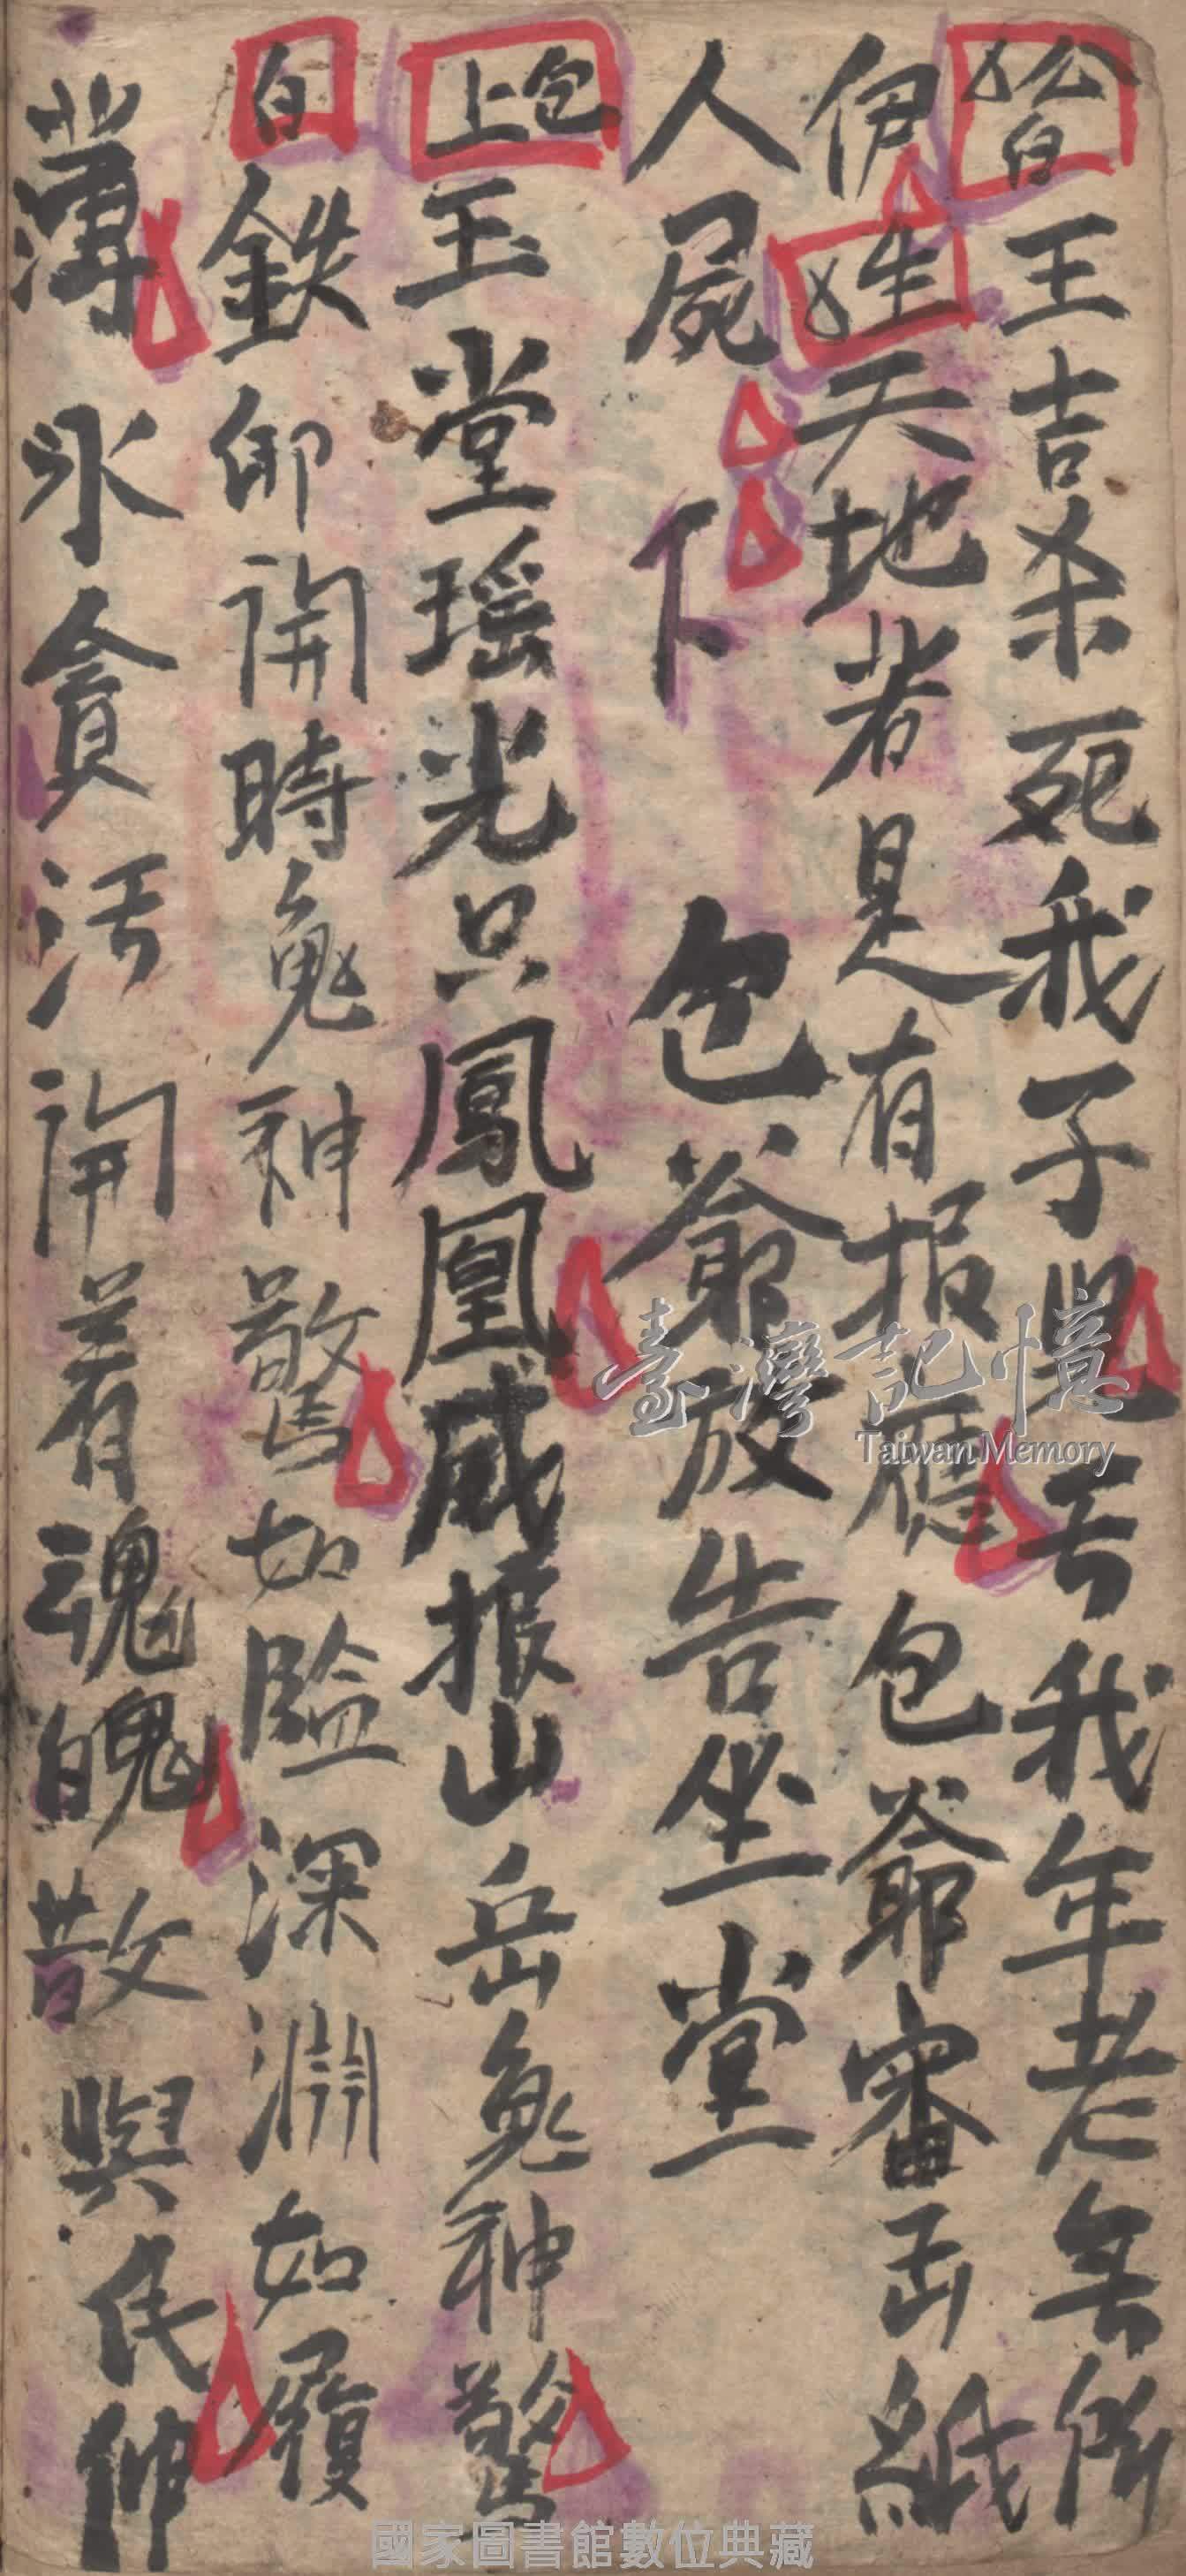 公又白王吉杀死我子 苦我年老無所
伊 生又天地若是有报應包爺審 紙
人屍下 包爺放告坐堂
包上玉堂瑶光只鳳凰威振山岳鬼神驚
白鉄卸開時鬼神驚如臨深淵如履
薄氷貪污開着魂魄散與民伸
臺灣記憶
Taiwan Memory
國家圖書館數位典藏